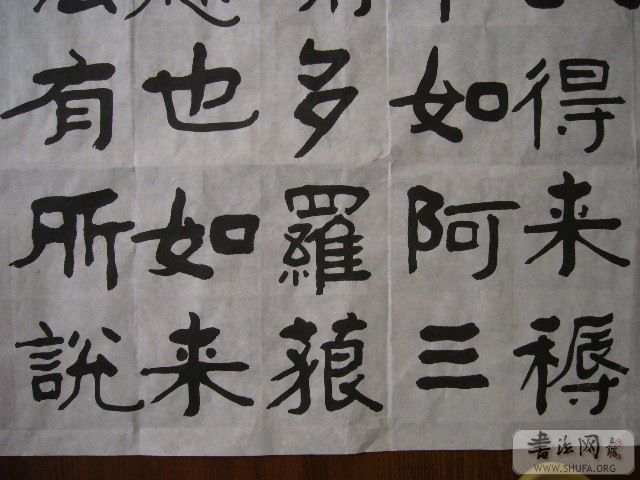 得来耨
如阿三
多羅藐
也如来
有所説
書法网
WWW.SHUFA.ORG